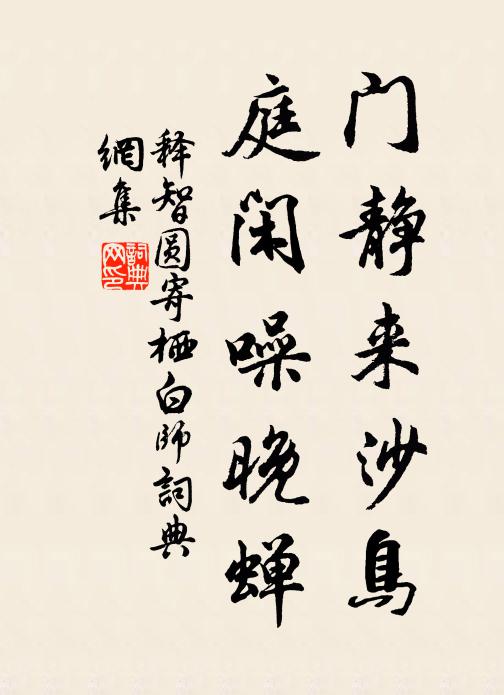 门静来沙鸟
庭闲噪晚蝉
释智圆寄栖白师词典
網集
詞典网印